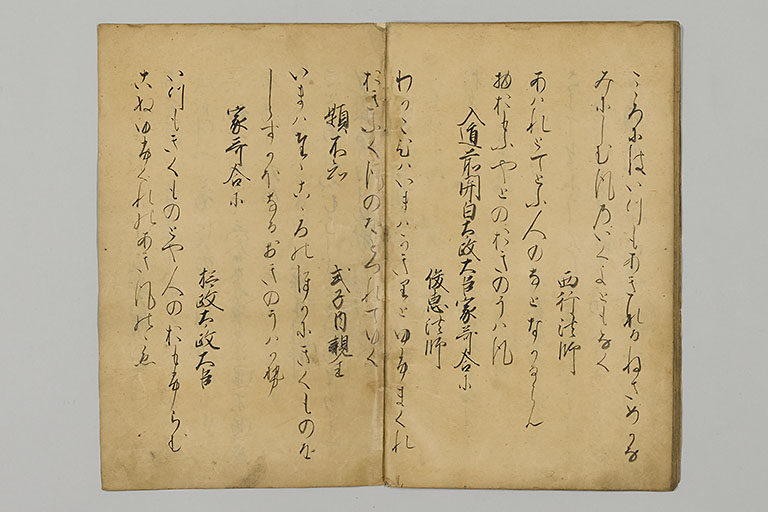 こゝろにはいつもあきなるねさめかな
みにしむ風のいくよともなく
西行法師
あはれとてとふ人のなとなかるらん
物おもふやとのおきのうは風
入道前関白太政大臣家哥合に
俊恵法師
わかこひはいまはかきりとゆふまくれ
おきふく風のおとつれてゆく
題不知
式子内親王
いまはたゝこゝろのほかにきくものを
しらすかほなるおきのうはかせ
家哥合に
摂政太政大臣
いつもきくものとや人のおもふらむ
こぬゆふくれのあき風のこゑ